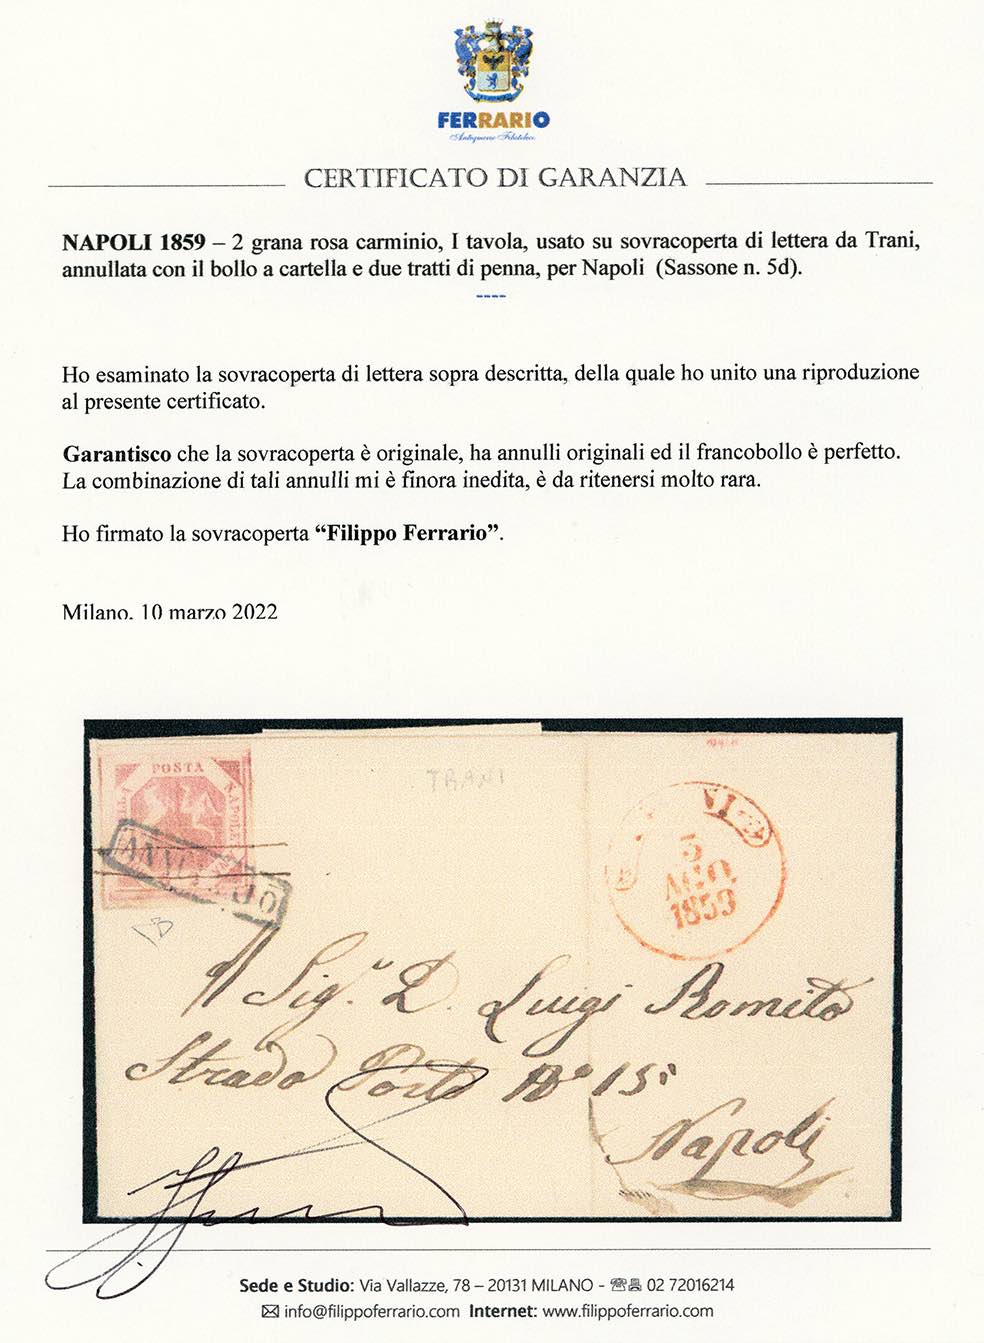 FERRARIO
Antiquario Filatelico
CERTIFICATO DI GARANZIA
NAPOLI 1859 – 2 grana rosa carminio, I tavola, usato su sovracoperta di lettera da Trani,
annullata con il bollo a cartella e due tratti di penna, per Napoli (Sassone n. 5d).
----
Ho esaminato la sovracoperta di lettera sopra descritta, della quale ho unito una riproduzione
al presente certificato.
Garantisco che la sovracoperta è originale, ha annulli originali ed il francobollo è perfetto.
La combinazione di tali annulli mi è finora inedita, è da ritenersi molto rara.
Ho firmato la sovracoperta “Filippo Ferrario”.
Milano, 10 marzo 2022
POSTA
NAPOLE
TRANI
5
AGO.
1859
Sig.r D. Luigi Romito
Strada Porto No 15
Napoli
Sede e Studio: Via Vallazze, 78 – 20131 MILANO - 02 72016214
info@filippoferrario.com Internet: www.filippoferrario.com